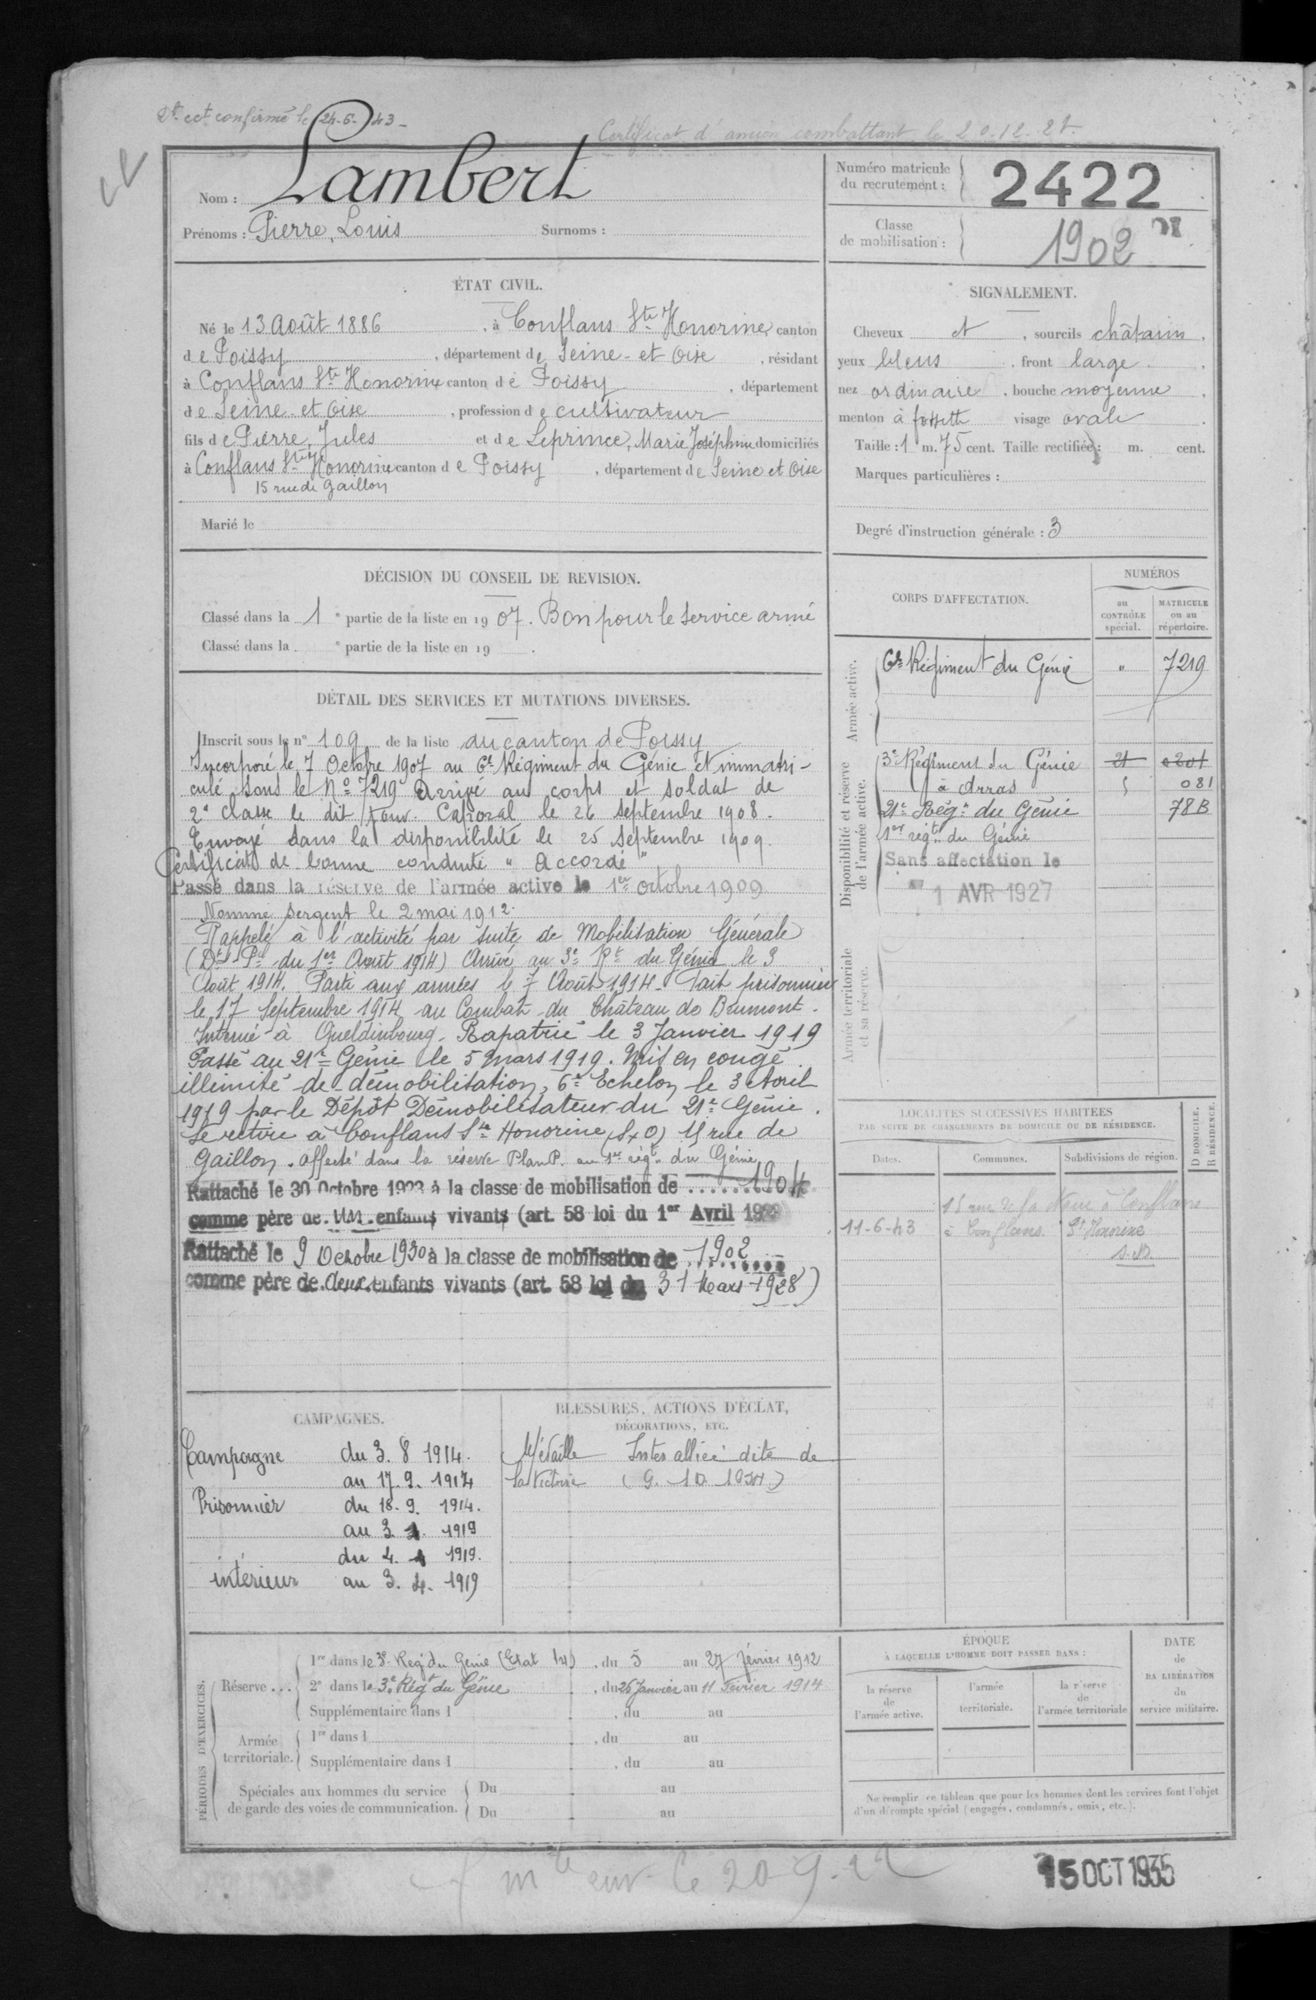 cct confirmé le 24-6-43-
Certificat d'ancien combattant le 20.12.27
Nom : Lambert
Prénoms : Pierre, Louis Surnoms :
Numéro matricule du recrutement : 2422
Classe de mobilisation : 1902
ÉTAT CIVIL.
Né le 13 Août 1886, à Conflans Ste Honorine, canton
de Poissy, département de Seine-et Oise, résidant
à Conflans Ste Honorine canton de Poissy, département
de Seine-et Oise, profession de cultivateur
fils de Pierre, Jules et de Leprince, Marie Joséphine domiciliés
à Conflans Ste Honorine canton de Poissy, département de Seine et Oise
15 rue de Gaillon
Marié le
SIGNALEMENT.
Cheveux et, sourcils châtain,
yeux bleus, front large,
nez ordinaire, bouche moyenne,
menton à fossette visage ovale
Taille : 1 m. 75 cent. Taille rectifiée : m. cent.
Marques particulières :
Degré d'instruction générale : 3
DÉCISION DU CONSEIL DE REVISION.
Classé dans la 1e partie de la liste en 1907. Bon pour le service armé
Classé dans la e partie de la liste en 19 .
DÉTAIL DES SERVICES ET MUTATIONS DIVERSES.
Inscrit sous le n° 109 de la liste du canton de Poissy
Incorporé le 7 Octobre 1907 au 6e Régiment du Génie et immatri-
culé sous le No 7219 Arrivé au corps et soldat de
2e classe le dit jour. Caporal le 26 septembre 1908.
Envoyé dans la disponibilité le 25 septembre 1909.
Certificat de bonne conduite "Accordé"
Passé dans la réserve de l'armée active le 1er octobre 1909
Nommé sergent le 2 mai 1912.
Rappelé à l'activité par suite de Mobilisation Générale
(Dt Pl du 1er Août 1914) Arrivé au 3e Rt du Génie le 3
Août 1914. Parti aux armées le 7 Août 1914. Fait prisonnier
le 17 Septembre 1914 au Combat du Château de Brimont.
Interné à Quedlinbourg. Rapatrié le 3 Janvier 1919
Passé au 21e Génie le 5 Mars 1919. Mis en congé
illimité de démobilisation, 6e Echelon, le 3 Avril
1919 par le Dépôt Démobilisateur du 21e Génie.
Se retire à Conflans Ste Honorine (S&O) 15 rue de
Gaillon. Affecté dans la réserve Plan P. au 1er régt du Génie
Rattaché le 30 Octobre 1923 à la classe de mobilisation de 1904
comme père de un enfants vivants (art. 58 loi du 1er Avril 1923
Rattaché le 9 Octobre 1930 à la classe de mobilisation de 1902
comme père de deux enfants vivants (art. 58 loi du 31 Mars 1928)
CORPS D'AFFECTATION.
NUMÉROS
au CONTRÔLE spécial.
MATRICULE ou au répertoire.
Armée active.
6e Régiment du Génie " 7219
Disponibilité et réserve de l'armée active.
3e Régiment du Génie 21
à Arras 5 081
21e Régt du Génie 78B
1er régt du Génie
Sans affectation le
1 AVR 1927
Armée territoriale et sa réserve.
LOCALITÉS SUCCESSIVES HABITÉES
PAR SUITE DE CHANGEMENTS DE DOMICILE OU DE RÉSIDENCE.
Dates. Communes. Subdivisions de région. D DOMICILE. R RÉSIDENCE.
11-6-43 à Conflans Ste Honorine
CAMPAGNES.
Campagne du 3. 8 1914.
au 17. 9. 1914
Prisonnier du 18. 9. 1914.
au 3. 1. 1919
du 4. 1 1919.
intérieur au 3. 4. 1919
BLESSURES, ACTIONS D'ÉCLAT,
DÉCORATIONS, ETC.
Médaille Interalliée dite de
la Victoire
PÉRIODES D'EXERCICES.
Réserve... 1re dans le 3e Régt du Génie, du 5 au 27 février 1912
2e dans le 3e Régt du Génie, du 26 Janvier au 11 Février 1914
Supplémentaire dans l , du au
Armée territoriale. 1re dans l , du au
Supplémentaire dans l , du au
Spéciales aux hommes du service de garde des voies de communication. Du au
Du au
ÉPOQUE
À LAQUELLE L'HOMME DOIT PASSER DANS :
la réserve de l'armée active.
l'armée territoriale.
la réserve de l'armée territoriale
DATE de LA LIBÉRATION du service militaire.
Ne remplir ce tableau que pour les hommes dont les services font l'objet
d'un décompte spécial (engagés, condamnés, omis, etc.).
15 OCT 1935